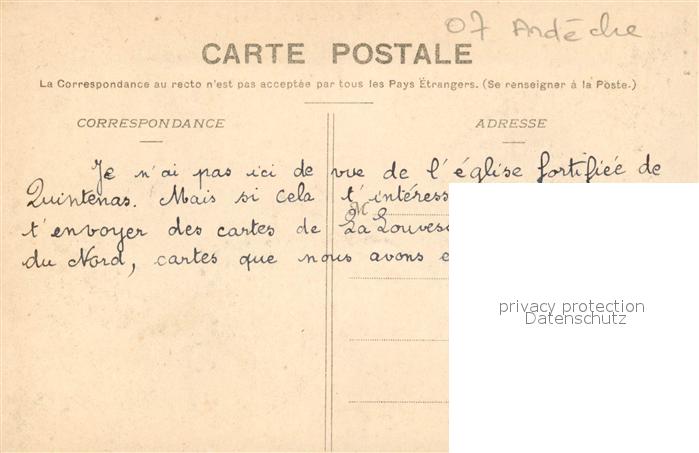 07 Ardèche
CARTE POSTALE
La Correspondance au recto n'est pas acceptée par tous les Pays Étrangers. (Se renseigner à la Poste.)
CORRESPONDANCE
ADRESSE
Je n'ai pas ici de vue de l'église fortifiée de
Quintenas. Mais si cela t'intéress
M
t'envoyer des cartes de La Louves
du Nord, cartes que nous avons e
privacy protection
Datenschutz